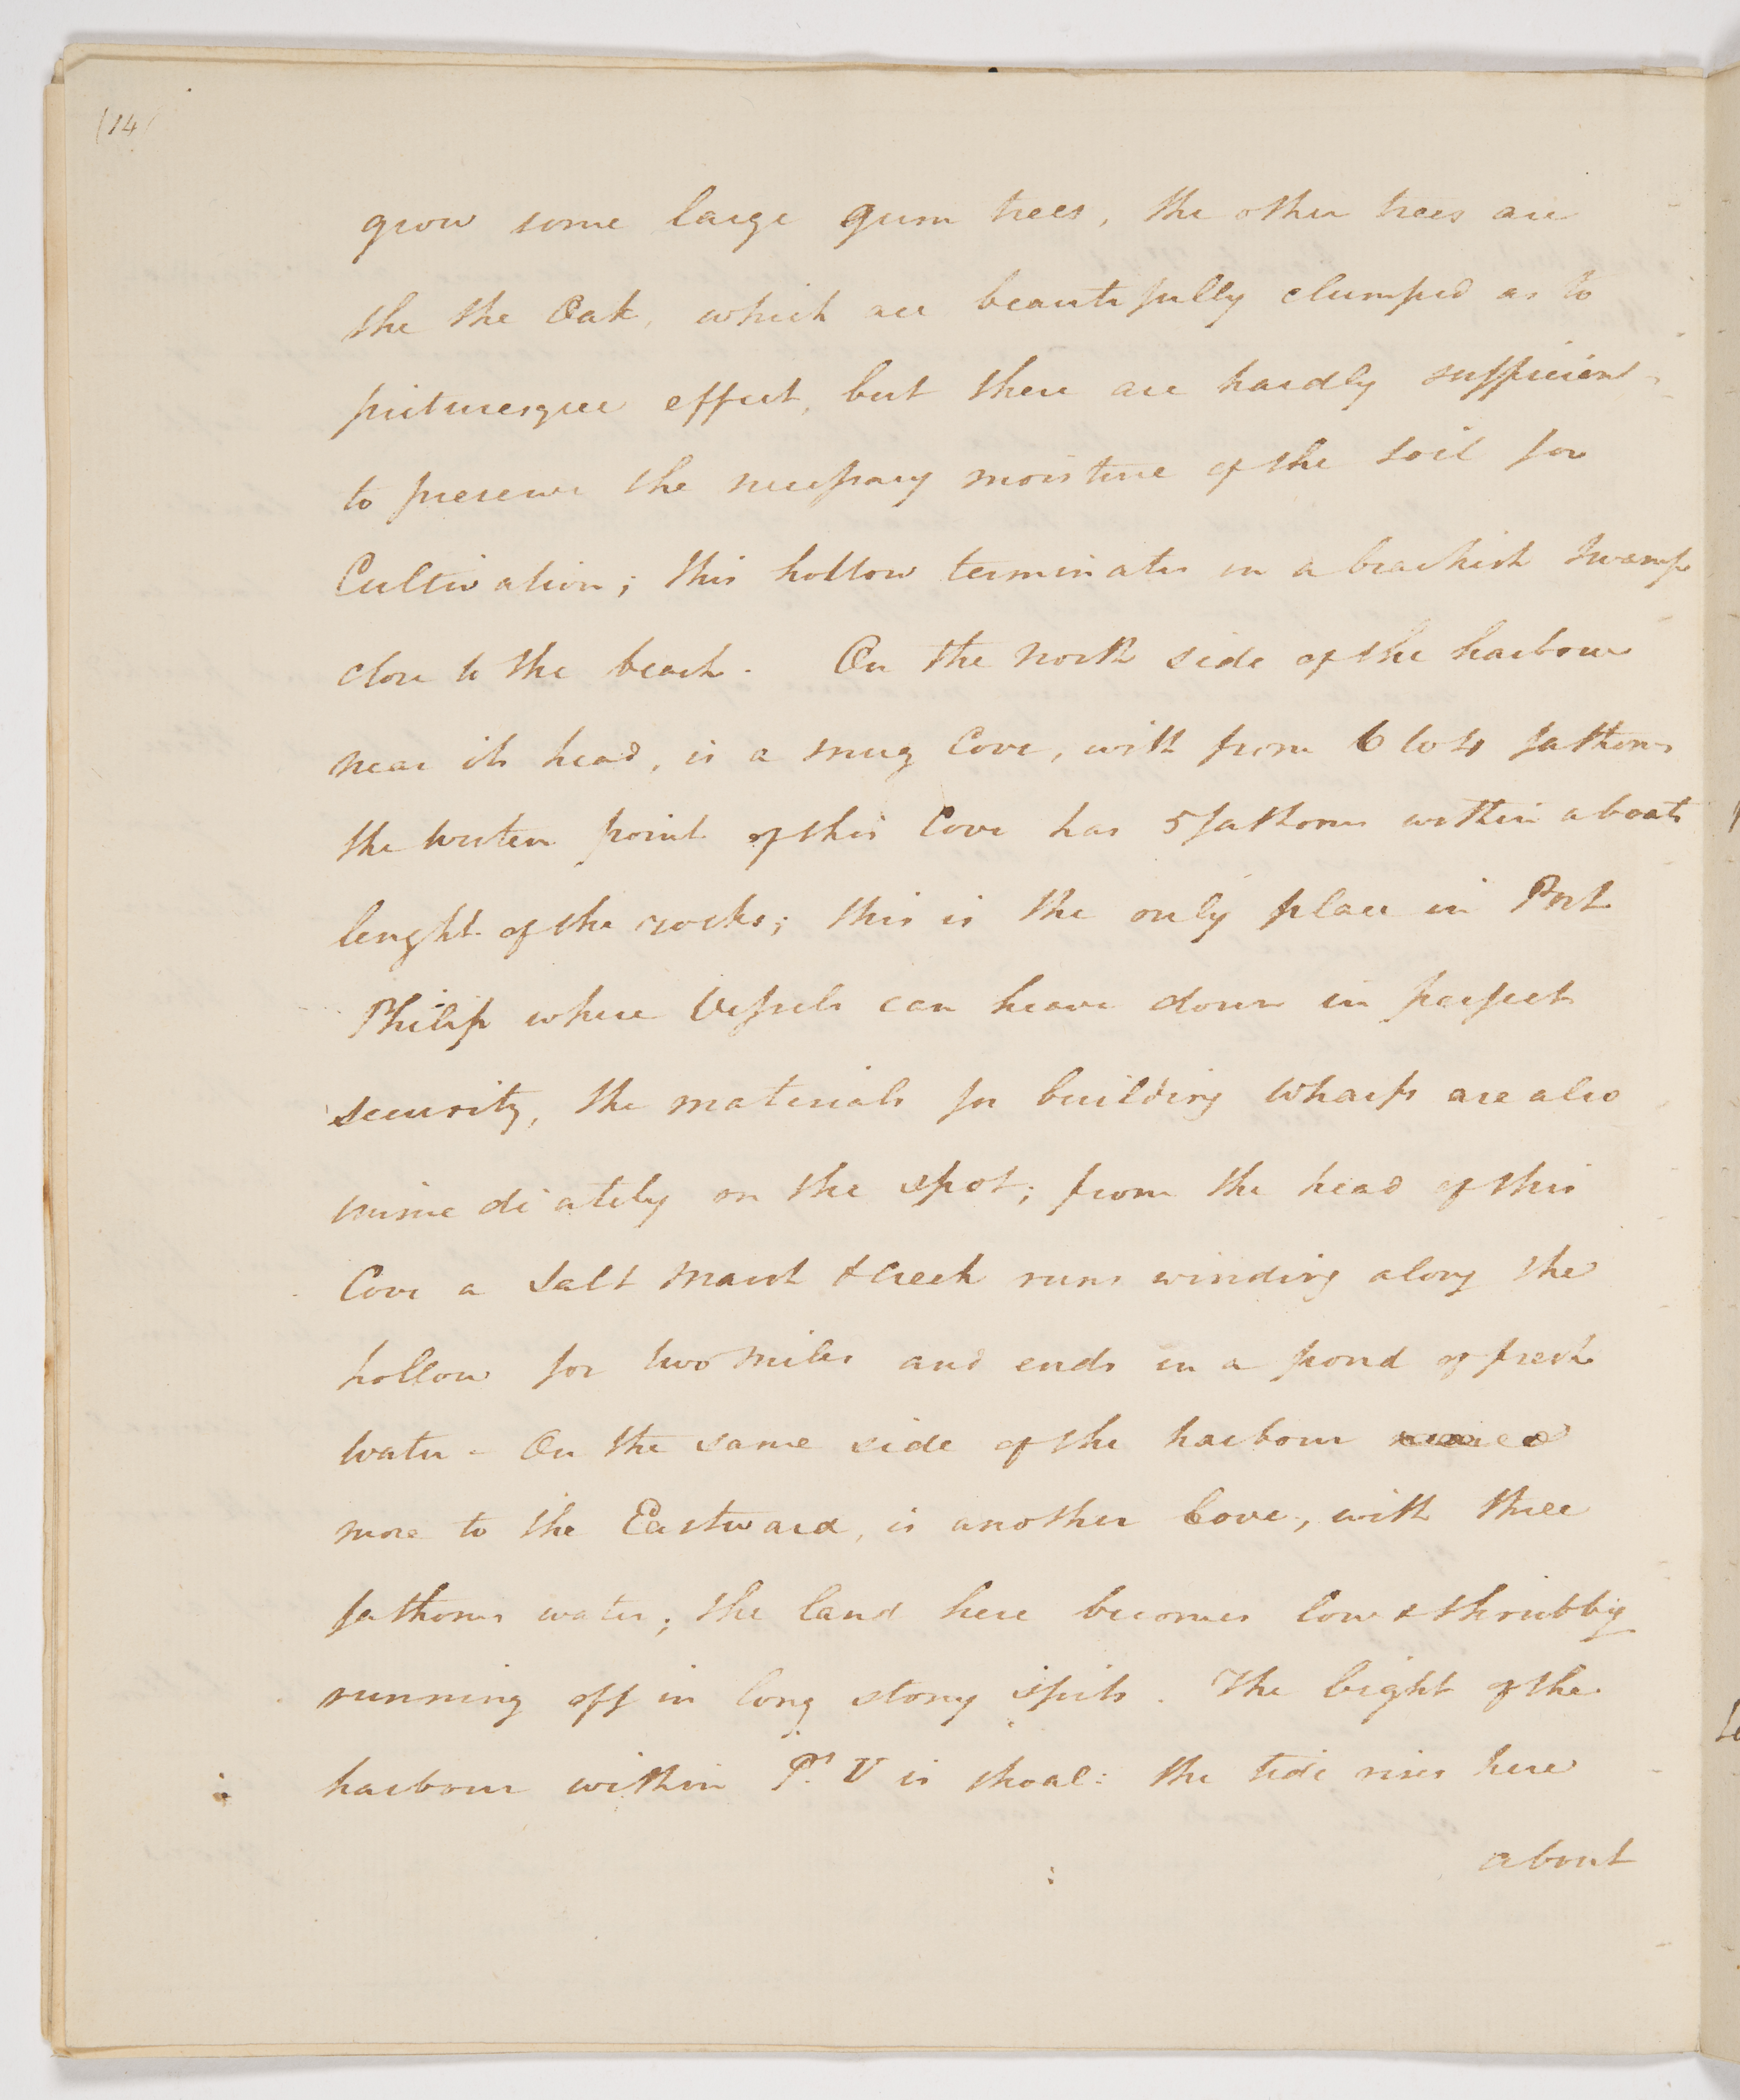 (14)
grow some large gum trees, the other trees are
the the Oak, which are beautifully clumped as to
picturesque effect, but there are hardly sufficient
to preserve the necessary moisture of the soil for
Cultivation; this hollow terminates in a brackish swamp
close to the beach. On the North side of the harbour
near its head, is a snug Cove, with from 6 to 4 fathoms
the Western point of this Cove has 5 fathoms within a boats
lenght of the rocks; this is the only place in Port
Philip where Vessels can heave down in perfect
security, the materials for building Wharfs are also
immediately on the spot; from the head of this
Cove a Salt Marsh & Creek runs winding along the
hollow for two Miles and ends in a pond of fresh
Water - On the same side of the harbour
more to the Eastward, is another Cove, with three
fathoms water; the land here becomes low & shrubby
running off in long stony spits. The bight of the
harbour within Pt. V is shoal: the tide rises here
about